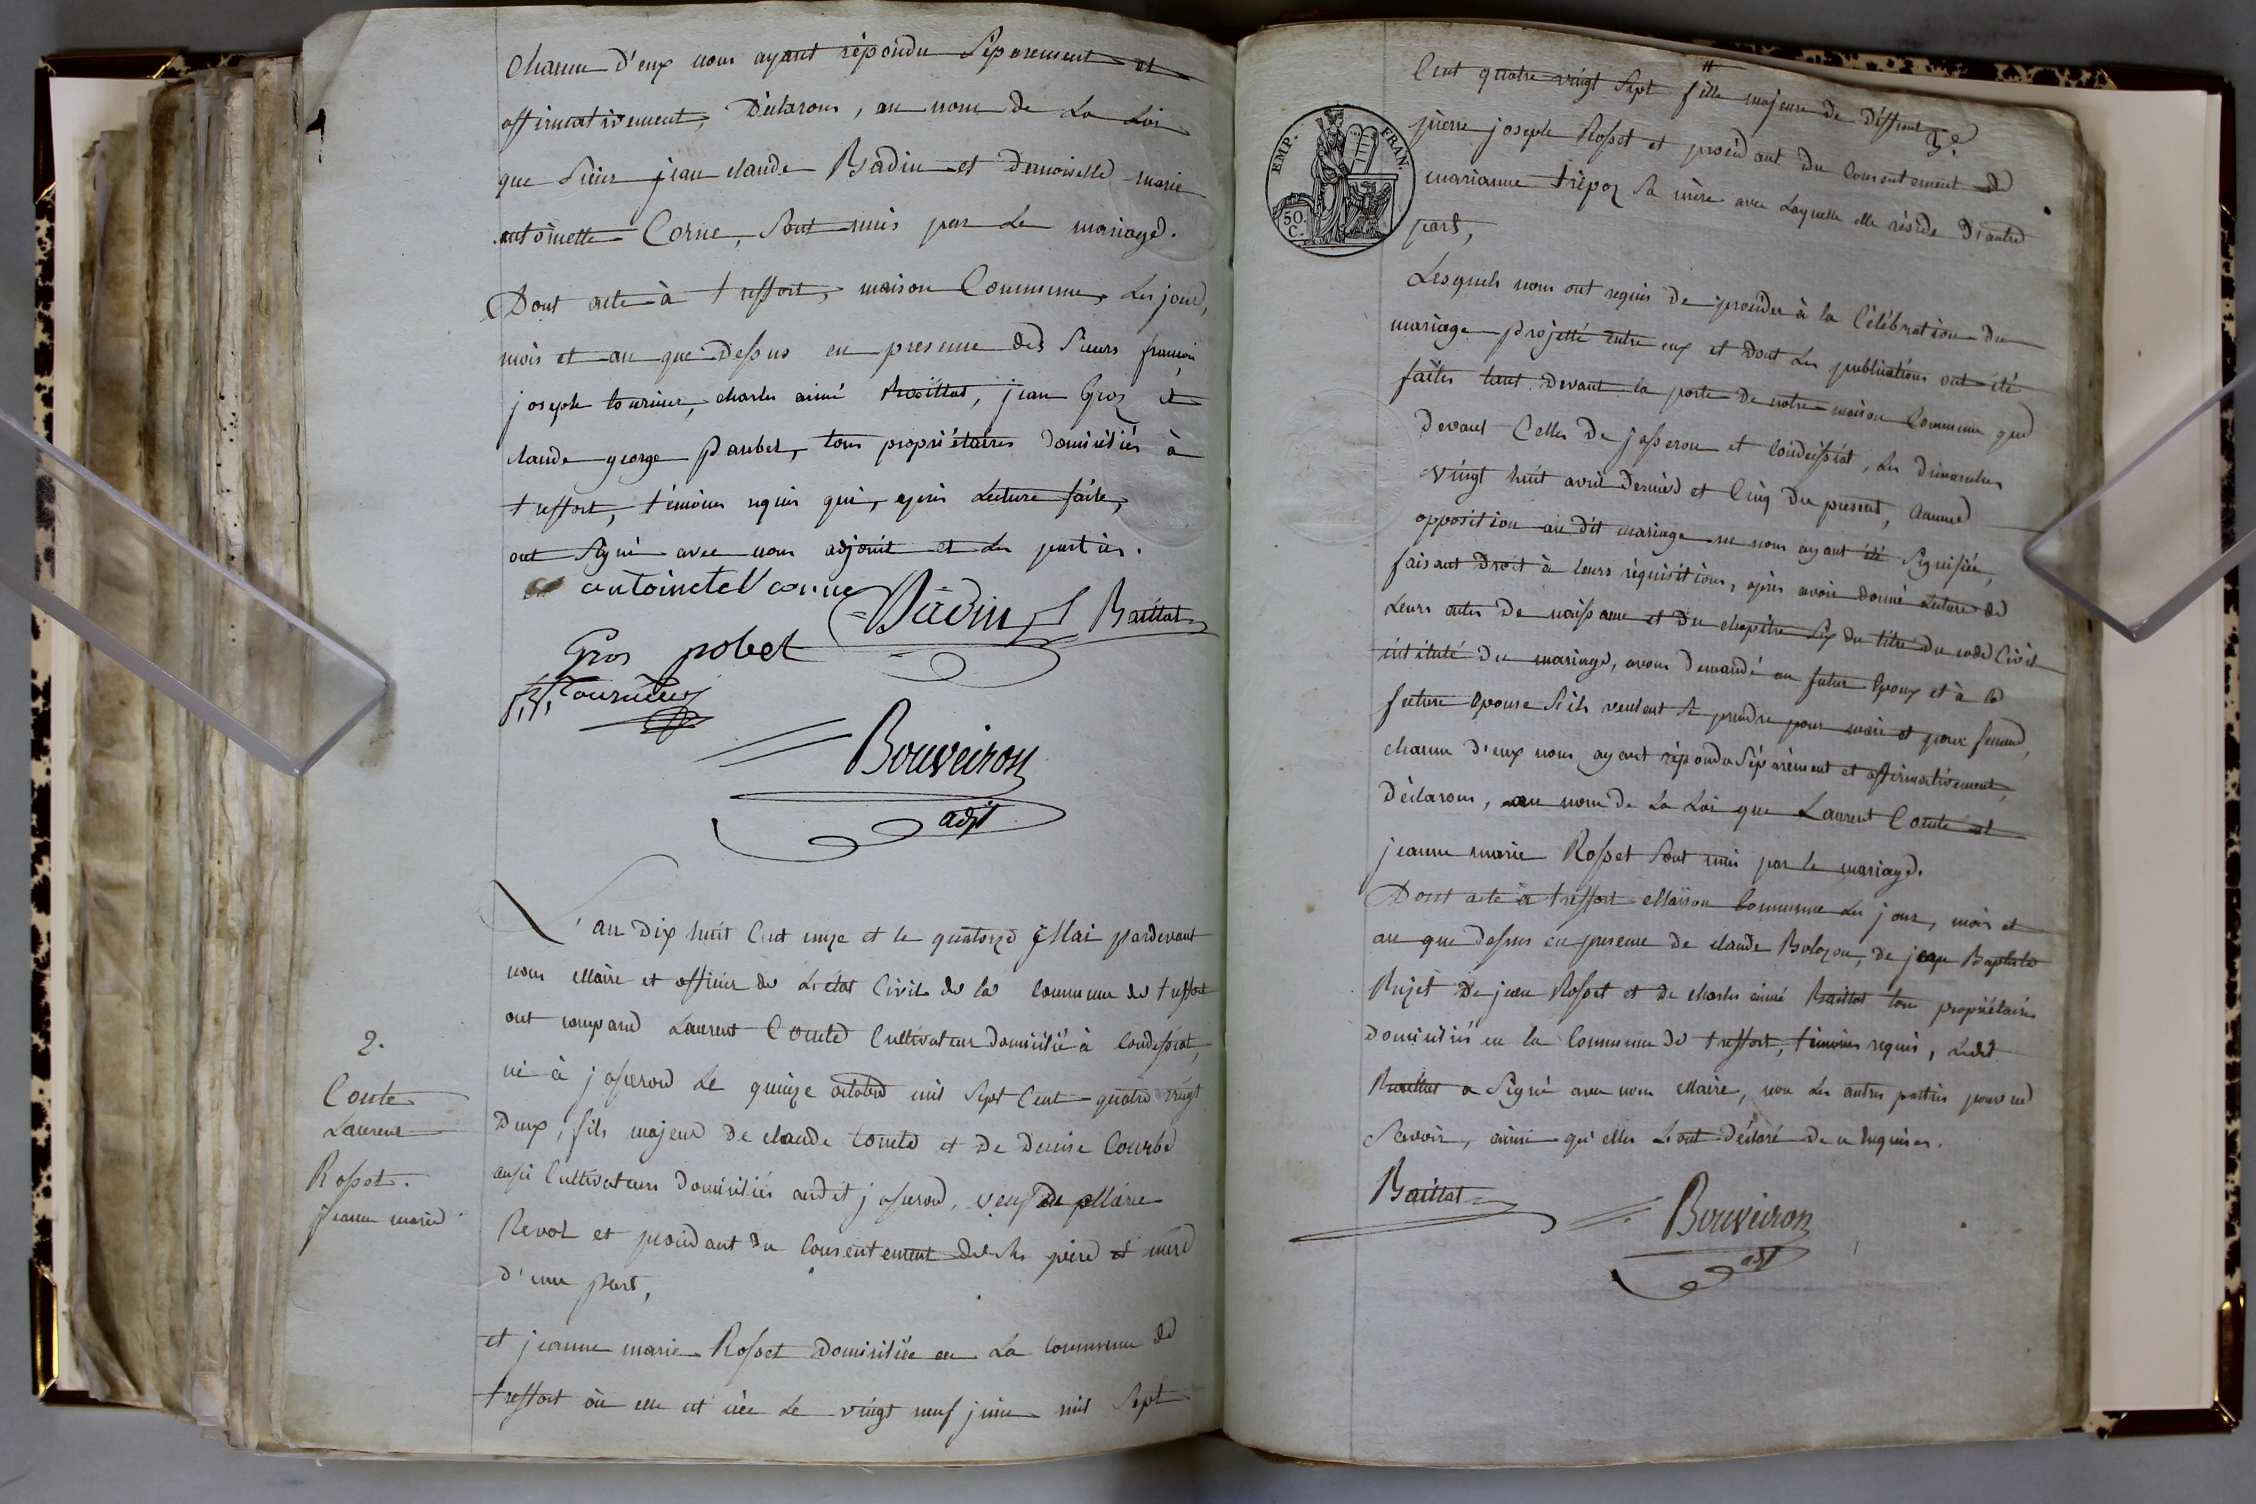 chacun d'eux nous ayant répondu séparement et
affirmativement, Déclarons, au nom de La Loi
que Sieur jean claude Badin et Demoiselle marie
antoinette Corne, sont unis par le mariage.
Dont acte à treffort, maison Commune, les jour,
mois et an que Dessus en presence des Sieurs françois
joseph tournier, charles aimé Baillat, jean Gros et
claude george paubel, tous propriétaires domiciliés à
treffort, témoins requis qui, après Lecture faite,
ont signé avec nous adjoint et les parties.
antoinctel corne Badin Baillat
Gros pobel
f, j, Tournier
Bouveiron
adjt
L'an dix huit Cent onze et le quatorze Mai pardevant
nous Maire et officier de L'état Civil de la commune de treffort
ont comparu Laurent Comte Cultivateur domicilié à Condessiat,
né à jasseron le quinze octobre mil sept Cent quatre vingt
Deux, fils majeur de claude Comte et de Denise Courbe
aussi Cultivateurs domiciliés audit jasseron, veuf de Marie
Revol et procédant du consentement de ses père et mère
d'une part,
et jeanne marie Rosset Domiciliée en La commune de
treffort où elle est née Le vingt neuf juin mil Sept
2.
Conte
Laurent
Rosset.
Jeanne marie
EMP. FRAN.
50. C.
3e
Cent quatre vingt sept fille majeure de Deffunt
pierre joseph Rosset et procédant du Consentement de
marianne trépoz sa mère avec Laquelle elle réside D'autre
part,
Lesquels nous ont requis de procéder à la Célébration du
mariage projetté entre eux et dont les publications ont été
faites tant devant la porte de notre maison Commune que
devant Celles de jasseron et Condeissiat, Les dimanches
vingt huit avril dernier et Cinq du present, aucune
opposition au dit mariage ne nous ayant été Signifiée,
faisant Droit à leurs réquisitions, après avoir donné Lecture de
Leurs actes de naissance et du chapitre Six du titre du code Civil
intitulé du mariage, avons demandé au futur Epoux et à la
future Epouse S'ils veulent se prendre pour mari et pour femme,
chacun d'eux nous ayant répondu Séparément et affirmativement,
Déclarons, au nom de La Loi que Laurent Comte et
jeanne marie Rosset sont unis par le mariage.
Dont acte à treffort Maison Commune Les jour, mois et
an que dessus en presence de claude Bolozon, de jean Baptiste
Pujet de jean Rosset et de charles aimé Baillat tous propriétaires
domiciliés en la Commune de treffort, témoins requis, Ledit
Baillat a Signé avec nous Maire, non les autres parties pour ne
Savoir, ainsi qu'elles l'ont déclaré de ce enquises.
Baillat
Bouveiron
adjt